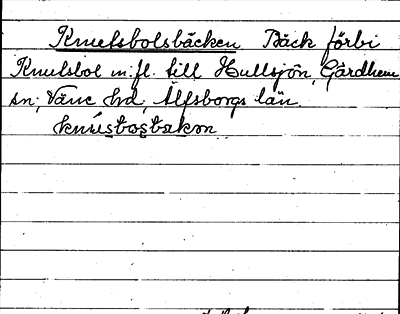 Knutsbolsbäcken Bäck förbi
Knutsbol m. fl. till Hullsjön, Gärdhem
sn, Väne hd, Älfsborgs län.